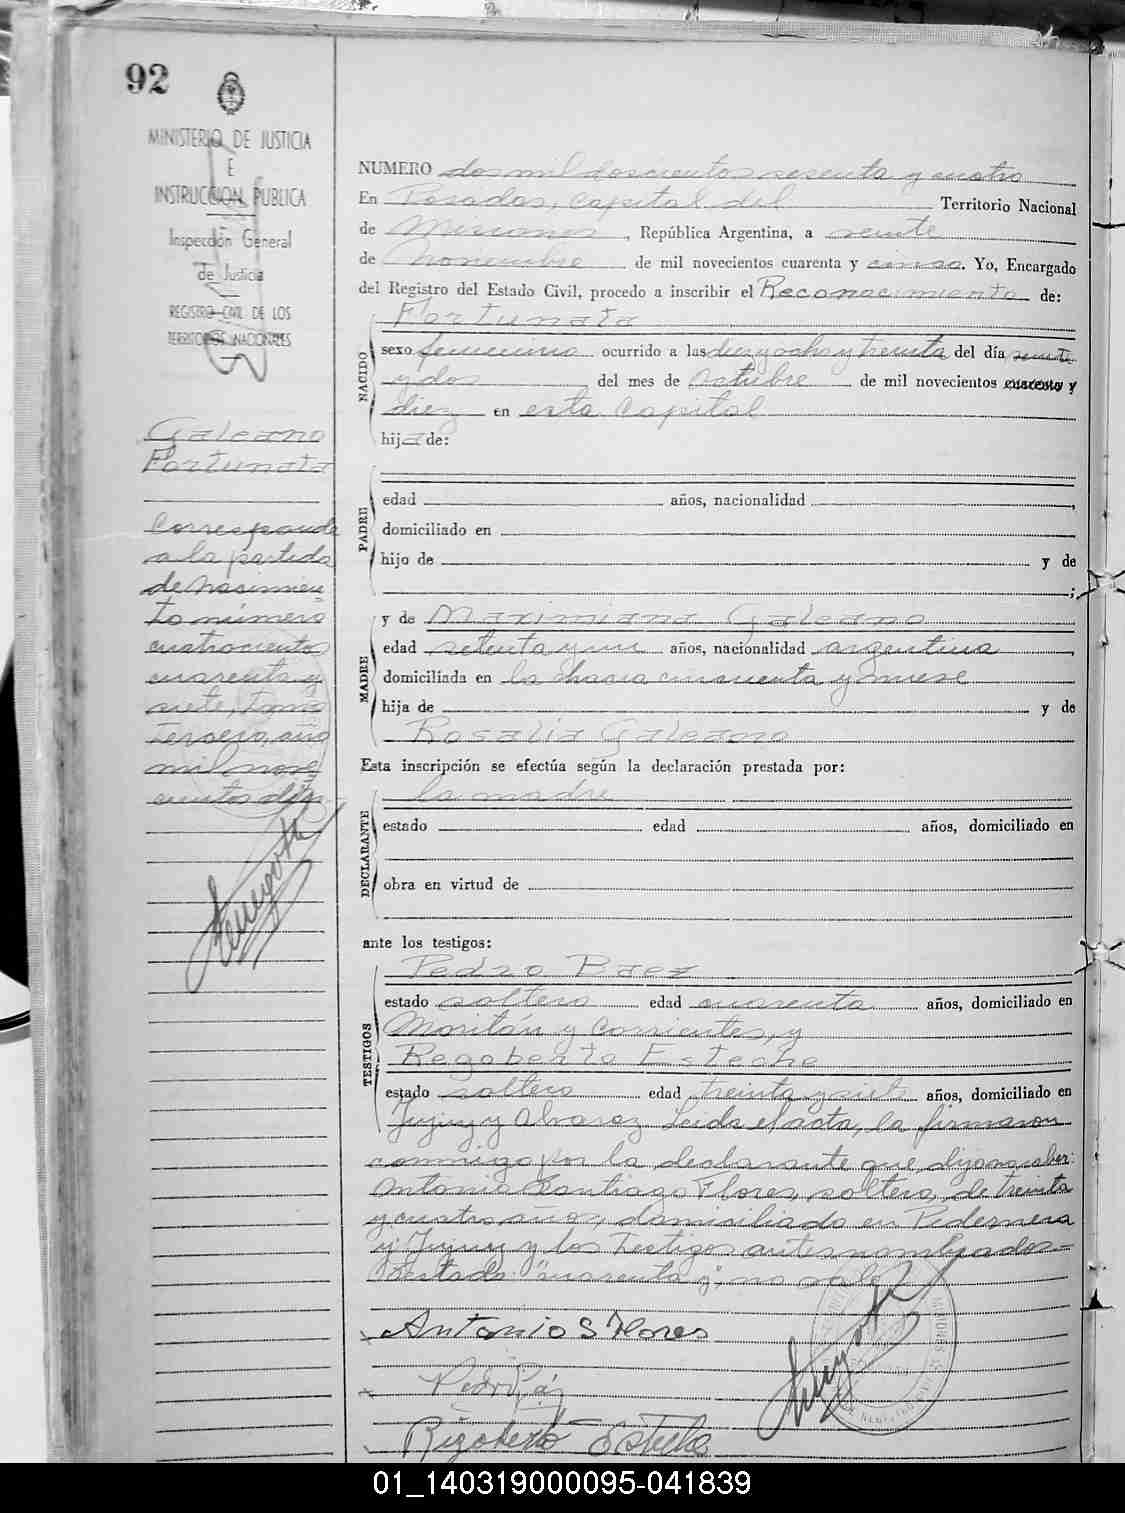 92
MINISTERIO DE JUSTICIA
E
INSTRUCCION PUBLICA
Inspección General
de Justicia
REGISTRO CIVIL DE LOS
TERRITORIOS NACIONALES
Galeano
Fortunata
Corresponde
a la partida
de nacimien-
to número
cuatrocientos
cuarenta y
siete, Tomo
Tercero, año
mil nove-
cientos diez
NUMERO dos mil doscientos sesenta y cuatro
En Posadas, capital del Territorio Nacional
de Misiones, República Argentina, a veinte
de Noviembre de mil novecientos cuarenta y cinco. Yo, Encargado
del Registro del Estado Civil, procedo a inscribir el Reconocimiento de:
Fortunata
NACIDO
sexo femenino ocurrido a las diez y ocho y treinta del día veinte
y dos del mes de Octubre de mil novecientos cuarenta y
diez en esta Capital
hija de:
PADRE
edad años, nacionalidad ,
domiciliado en
hijo de y de
;
y de Maximiana Galeano
MADRE
edad setenta y un años, nacionalidad argentina,
domiciliada en la chacra cincuenta y nueve
hija de y de
Rosalia Galeano
Esta inscripción se efectúa según la declaración prestada por:
la madre
DECLARANTE
estado edad años, domiciliado en
obra en virtud de
ante los testigos:
Pedro Baez
TESTIGOS
estado soltero edad cuarenta años, domiciliado en
y Corrientes, y
Regoberto Esteche
estado soltero edad treinta y siete años, domiciliado en
Jujuy y Alvarez Leida el acta, la firmaron
conmigo por la declarante que dijo no saber:
Antonio Santiago Flores, soltero, de treinta
y cuatro años, domiciliado en Pedernera
y Jujuy y los Testigos antes nombrados=
Testado: "cuarenta y", no vale
Antonio S Flores
Rigoberto Esteche
01_140319000095-041839